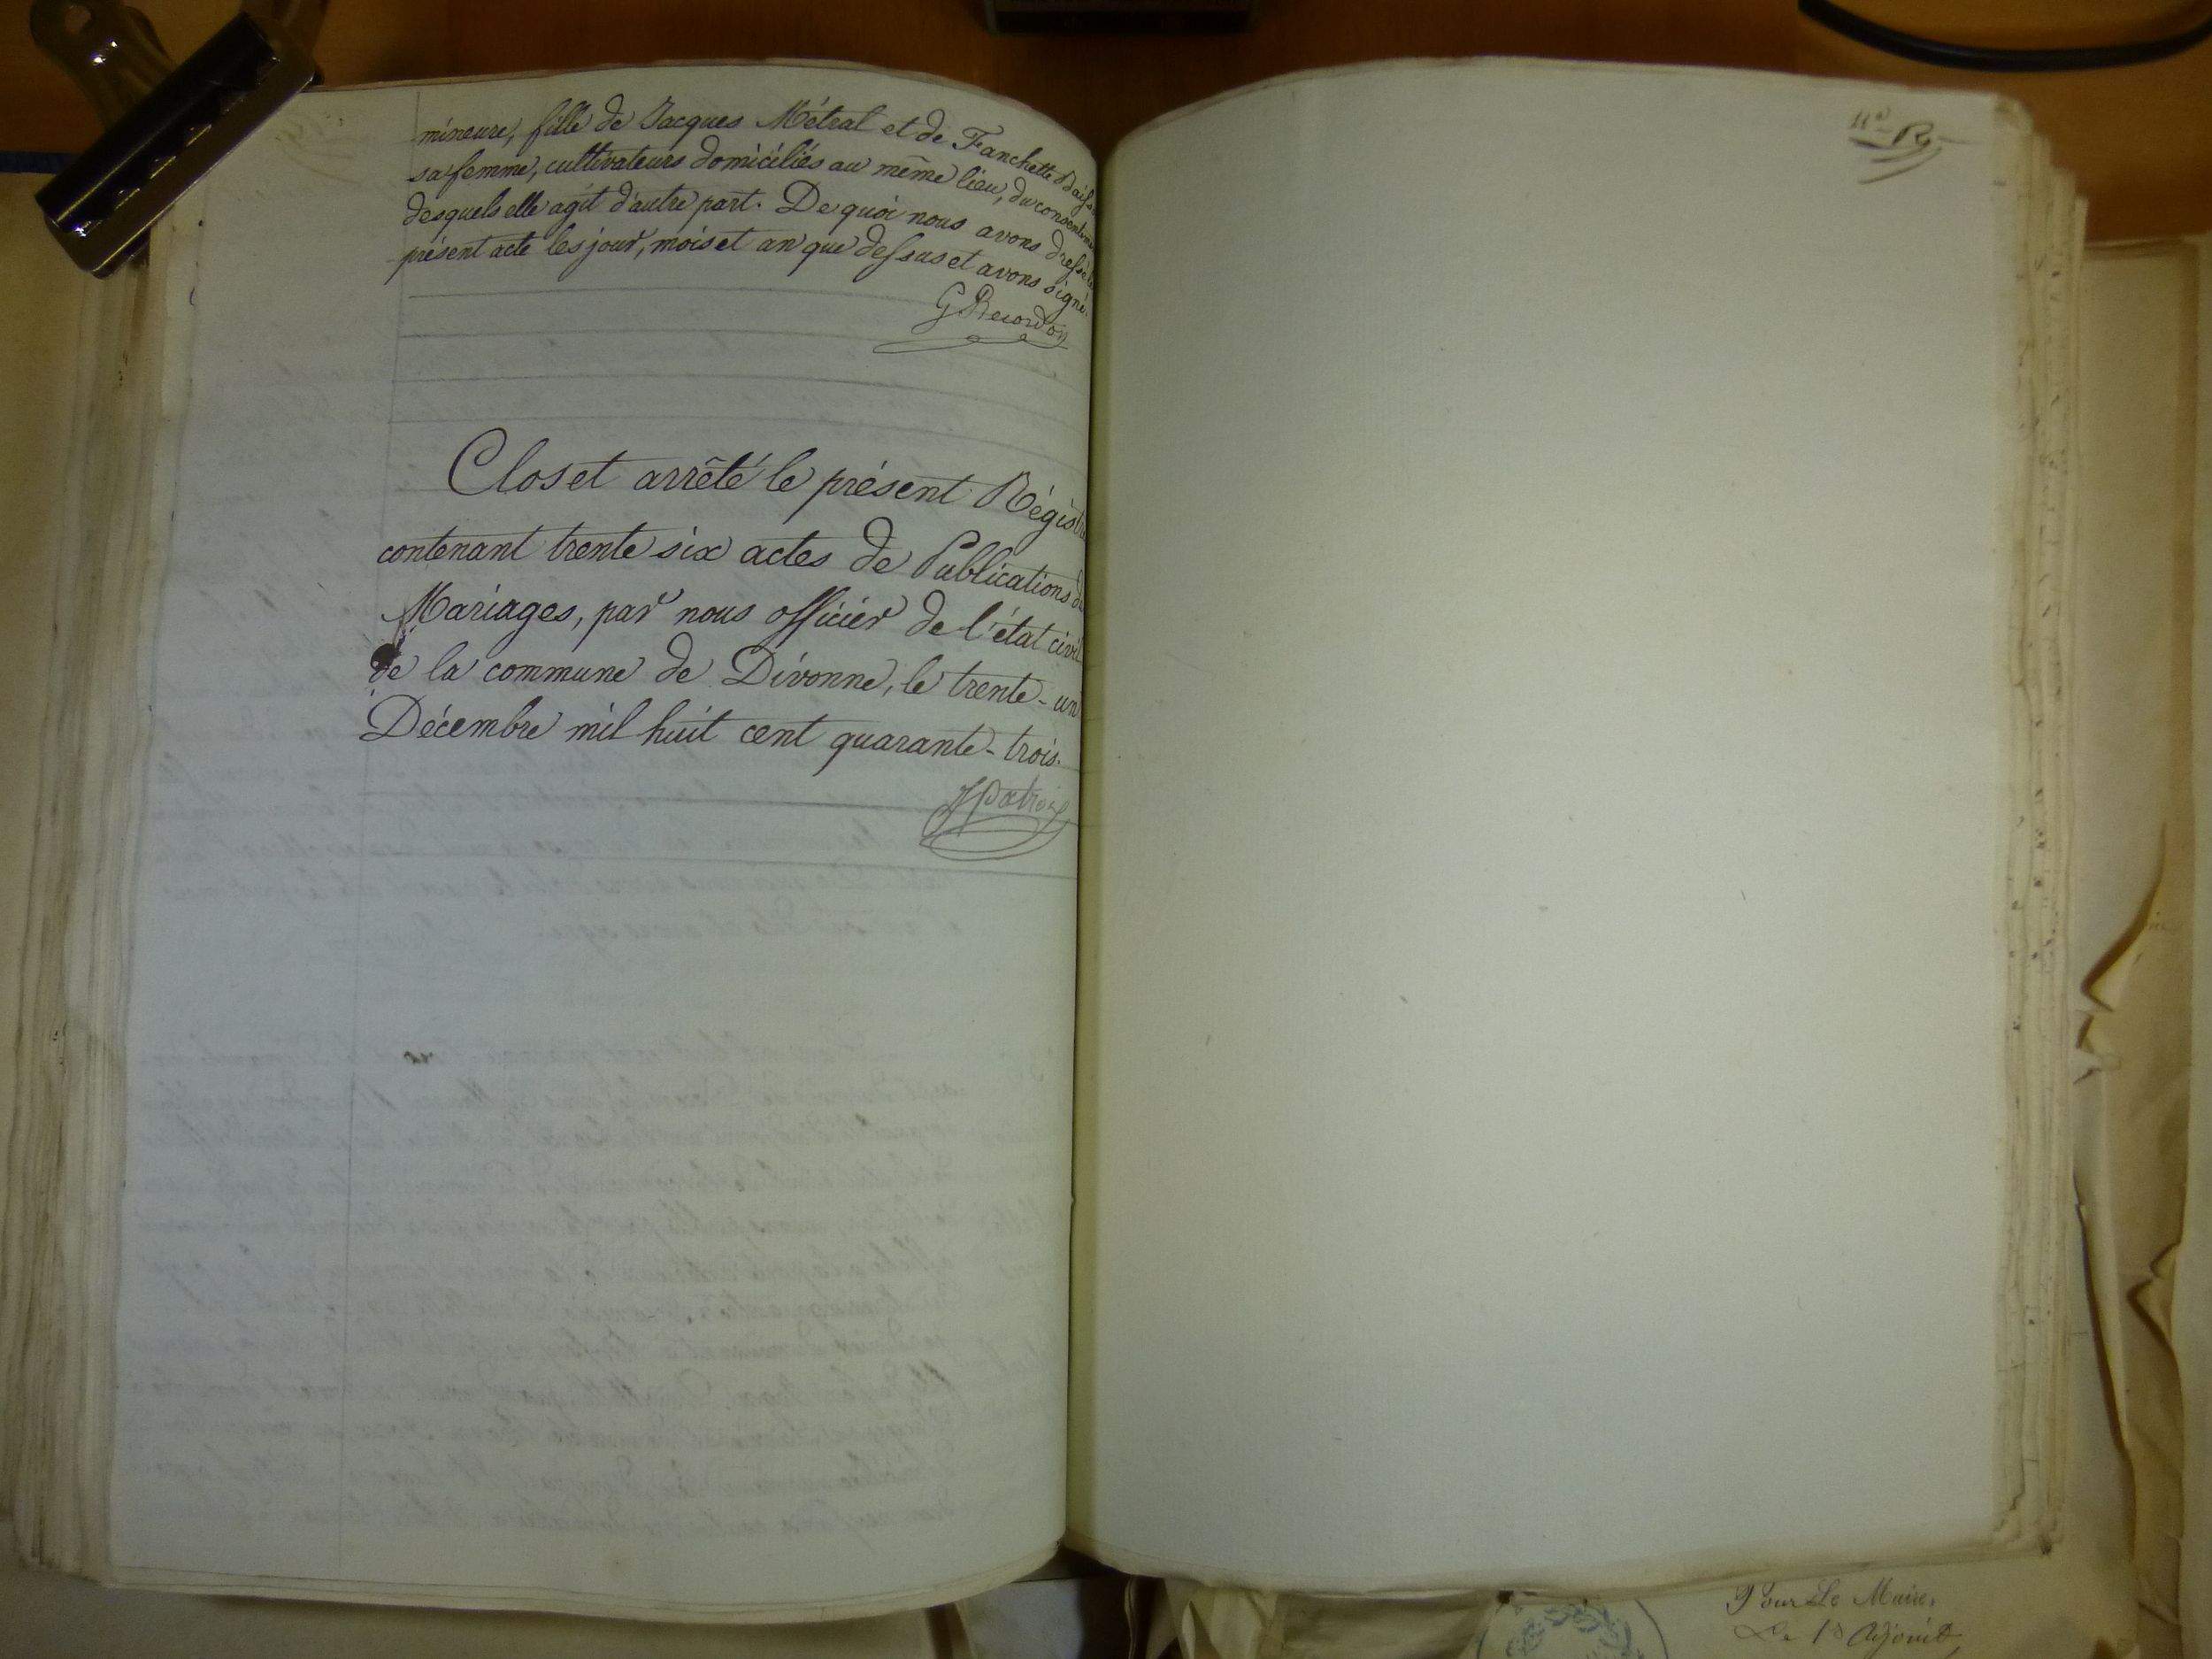 mineure, fille de Jacques Métral et de Fanchette
sa femme, cultivateurs domiciliés au même lieu, du consentement
desquels elle agit d'autre part. De quoi nous avons dressé le
présent acte les jour, mois et an que dessus et avons signé.
G Recordon
Clos et arrêté le présent Régistre
contenant trente six actes de Publications de
Mariages, par nous officier de l'état civil
de la commune de Divonne, le trente-un
Décembre mil huit cent quarante-trois.
Pour Le Maire,
Le 1er Adjoint,